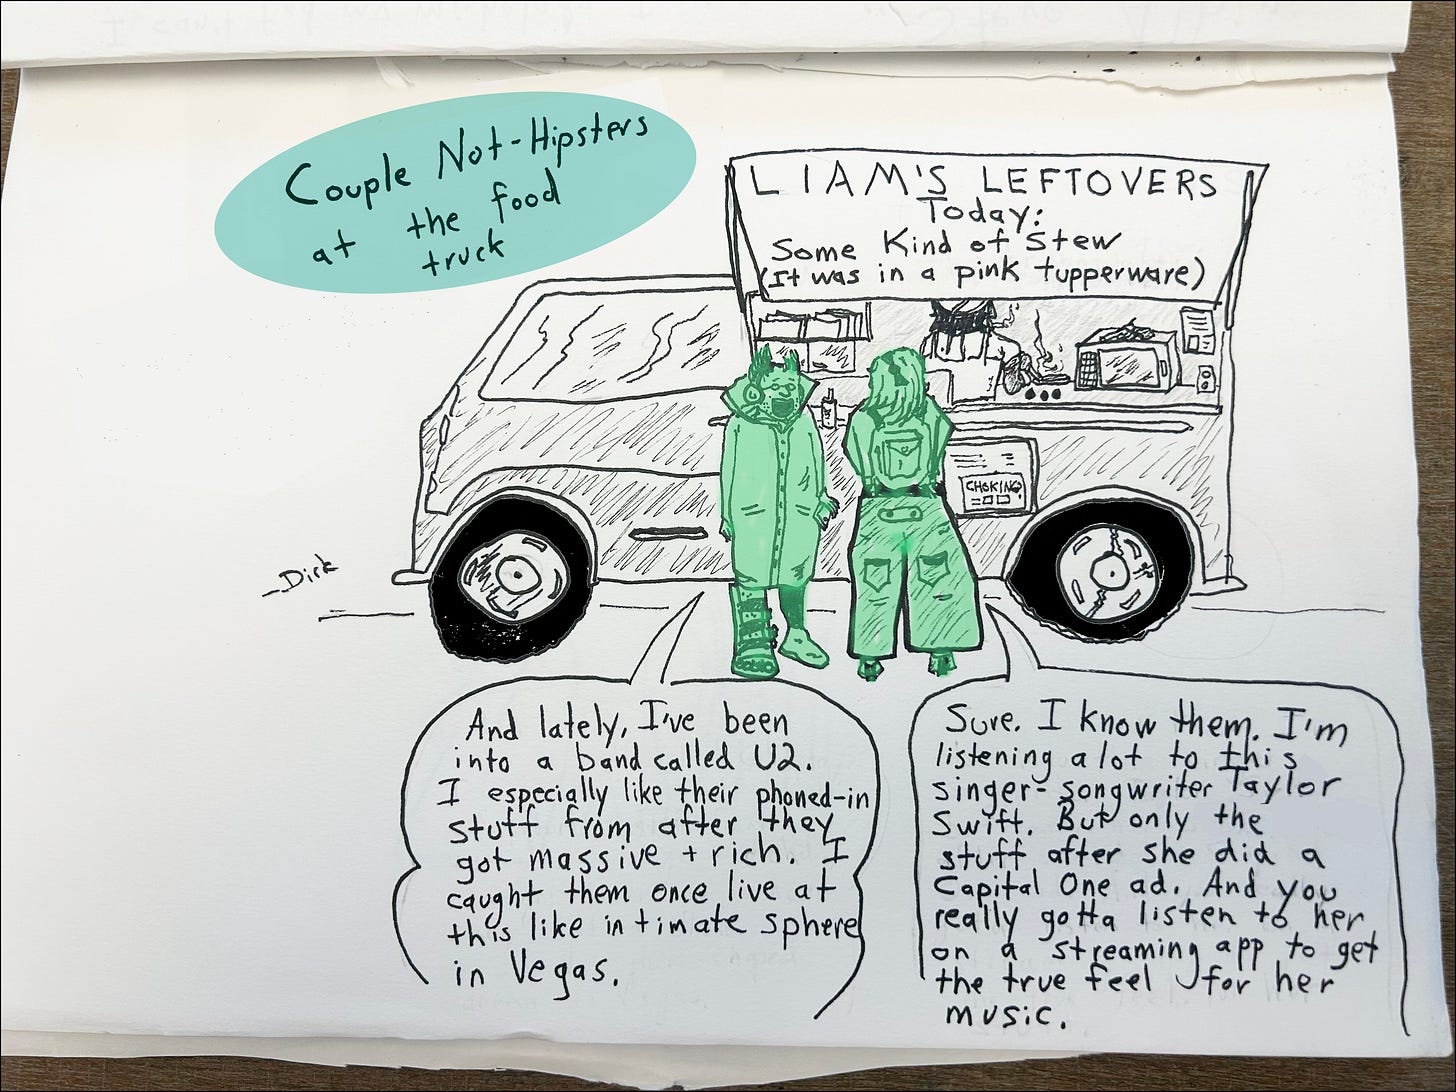 Couple Not-Hipsters
at the food
truck
LIAM'S LEFTOVERS
Today:
Some Kind of Stew
(It was in a pink tupperware)
CHOKING
-Dirk
And lately, I've been
into a band called U2.
I especially like their phoned-in
stuff from after they
got massive + rich. I
caught them once live at
this like intimate sphere
in Vegas.
Sure. I know them. I'm
listening a lot to this
singer-songwriter Taylor
Swift. But only the
stuff after she did a
Capital One ad. And you
really gotta listen to her
on a streaming app to get
the true feel for her
music.